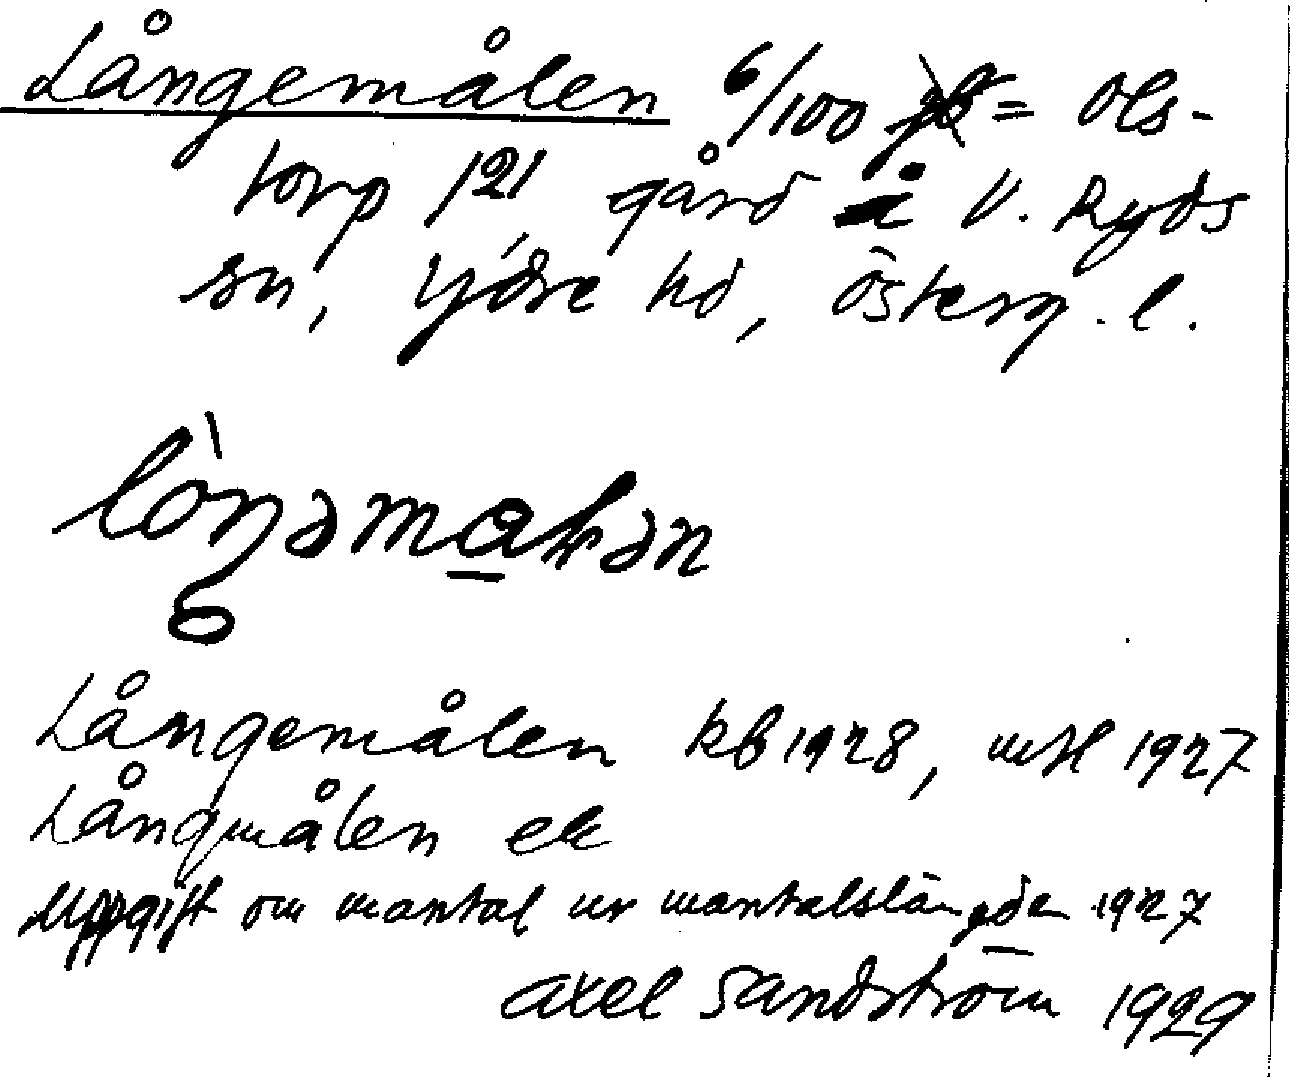 Långemålen 6/100 = Ols-
torp 121, gård i V. Ryds
sn, Ydre hd, Österg. l.
Långemålen kb 1928, mtl 1927
Långmålen ek
Uppgift om mantal ur mantalslängden 1927
Axel Sandström 1929